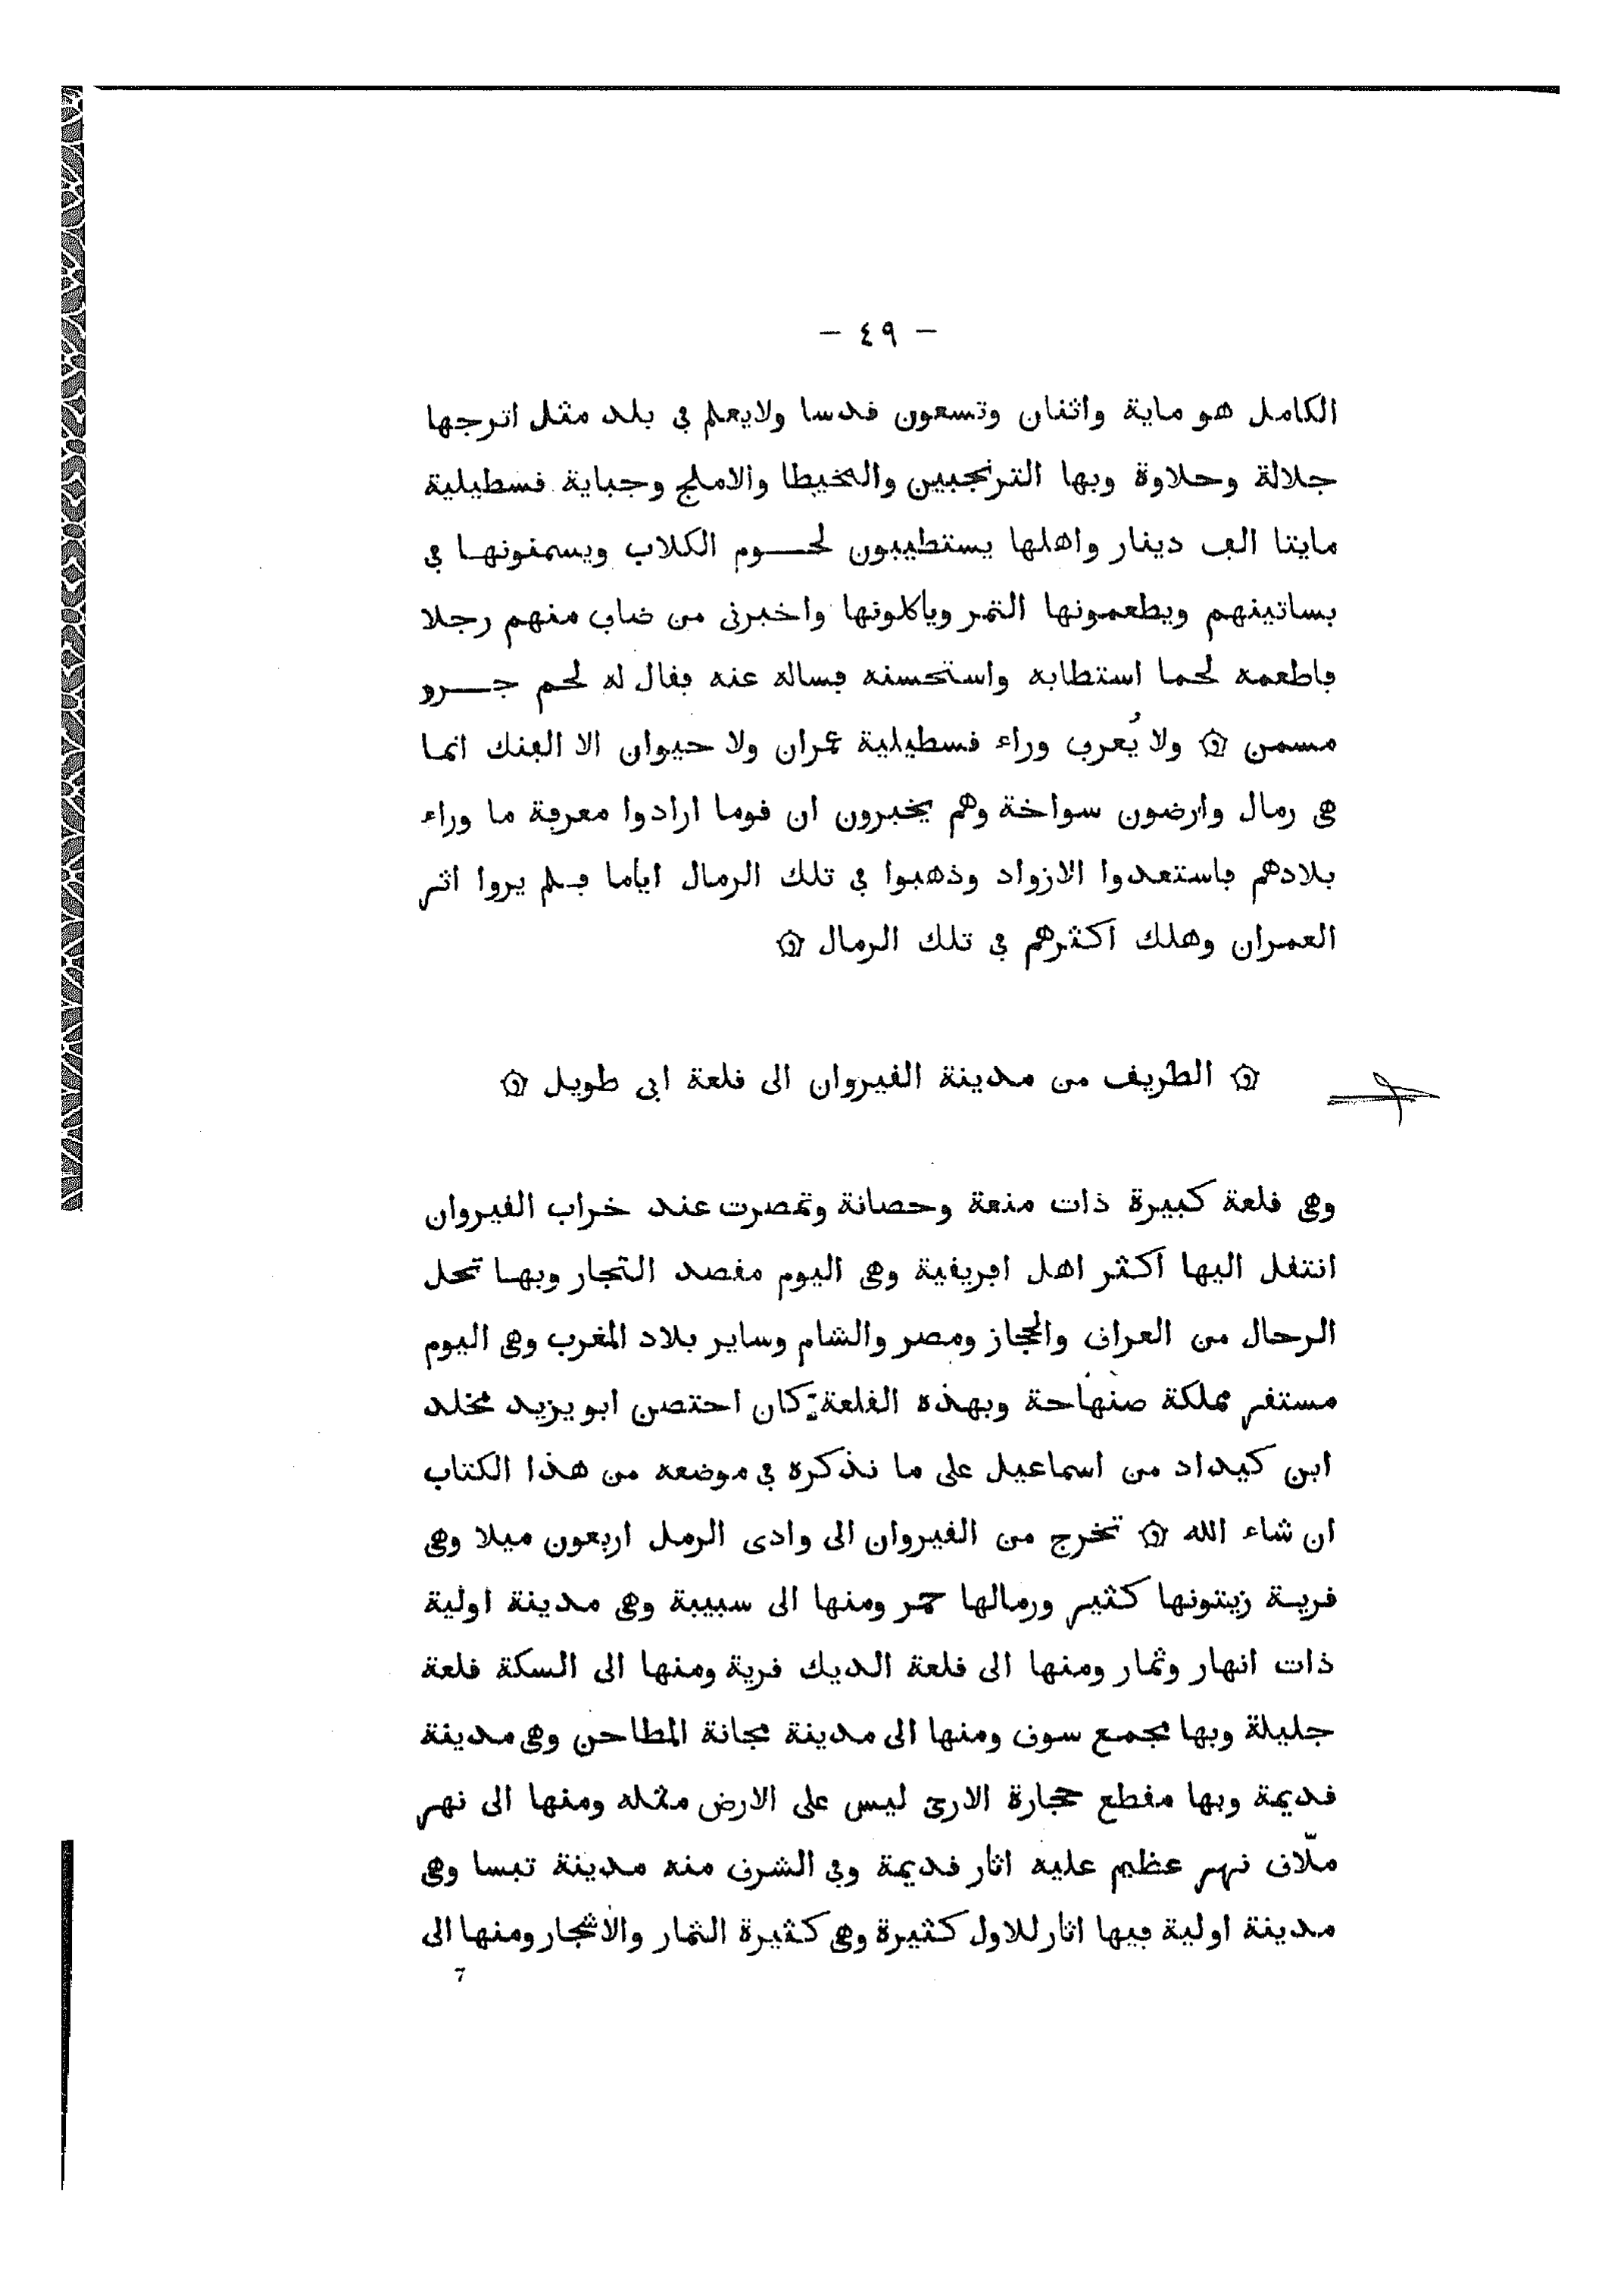 — ٤٩ —
الكامل هو ماية واثنان وتسعون قدسا ولايعلم في بلد مثل اترجها
جلالة وحلاوة وبها الترنجبين والمخيطا والاملج وجباية قسطيلية
مايتا الف دينار واهلها يستطيبون لحوم الكلاب ويسمنونها في
بساتينهم ويطعمونها التمر وياكلونها واخبرنى من ضاف منهم رجلا
فاطعمه لحما استطابه واستحسنه فساله عنه فقال له لحم جرو
مسمن ۞ ولا يُعرف وراء قسطيلية عمران ولا حيوان الا الفنك انما
هى رمال وارضون سواخة وهم يخبرون ان قوما ارادوا معرفة ما وراء
بلادهم فاستعدوا الازواد وذهبوا في تلك الرمال اياما فلم يروا اثر
العمران وهلك اكثرهم في تلك الرمال ۞
۞ الطريق من مدينة القيروان الى قلعة ابى طويل ۞
وهى قلعة كبيرة ذات منعة وحصانة وتمصرت عند خراب القيروان
انتقل اليها اكثر اهل افريقية وهى اليوم مقصد التجار وبها تحل
الرحال من العراق والحجاز ومصر والشام وساير بلاد المغرب وهى اليوم
مستقر مملكة صنهاجة وبهذه القلعة كان احتصن ابو يزيد مخلد
ابن كيداد من اسماعيل على ما نذكره في موضعه من هذا الكتاب
ان شاء الله ۞ تخرج من القيروان الى وادى الرمل اربعون ميلا وهى
قرية زيتونها كثير ورمالها حمر ومنها الى سبيبة وهى مدينة اولية
ذات انهار وثمار ومنها الى قلعة الديك قرية ومنها الى السكة قلعة
جليلة وبها مجمع سوق ومنها الى مدينة مجانة المطاحن وهى مدينة
قديمة وبها مقطع حجارة الارحى ليس على الارض مثله ومنها الى نهر
ملّاق نهر عظيم عليه اثار قديمة وفي الشرق منه مدينة تبسا وهى
مدينة اولية فيها اثار للاول كثيرة وهى كثيرة الثمار والاشجار ومنها الى
7